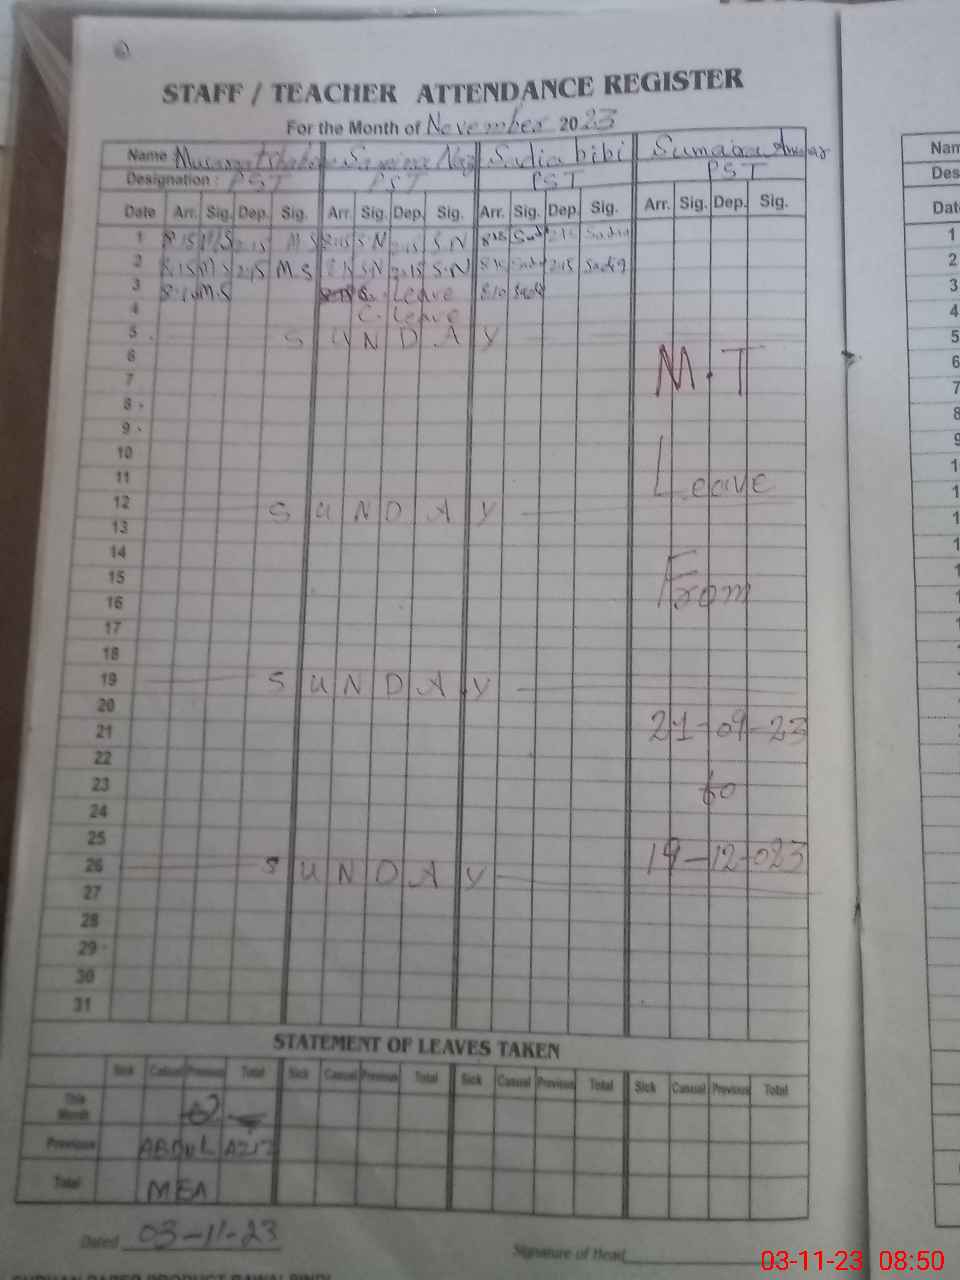 STAFF / TEACHER ATTENDANCE REGISTER
For the Month of November 2023
Name Sadia bibi Sumaira
Designation : PST PST PST PST
Date Arr. Sig. Dep. Sig. Arr. Sig. Dep. Sig. Arr. Sig. Dep. Sig. Arr. Sig. Dep. Sig.
1 8:15 M.S 2:15 M.S 8:15 S.N 2:15 S.N 8:15 Sadia 2:15 Sadia
2 8:15 M.S 2:15 M.S 8:15 S.N 2:15 S.N 8:15 Sadia 2:15 Sadia
3 8:10 M.S Leave 8:10 Sadia
4 C. Leave
5 SUNDAY
6 M.T
7
8
9
10
11 Leave
12 SUNDAY
13
14
15 From
16
17
18
19 SUNDAY
20
21 21-09-23
22
23 to
24
25
26 SUNDAY 19-12-023
27
28
29
30
31
STATEMENT OF LEAVES TAKEN
Sick Casual Previous Total Sick Casual Previous Total Sick Casual Previous Total Sick Casual Previous Total
This Month
Previous ABDUL AZIZ
Total MEA
Dated 03-11-23
Signature of Head
03-11-23 08:50
Nam
Des
Dat
1
2
3
4
5
6
7
8
9